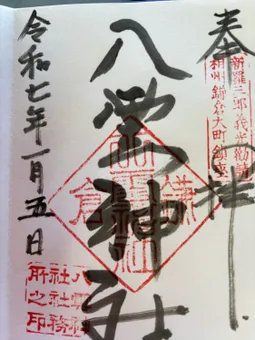 奉拝
新羅三郎義光勧請
相州鎌倉大町鎮座
八雲神社
鎌倉
八雲神社
社務所之印
令和七年一月五日